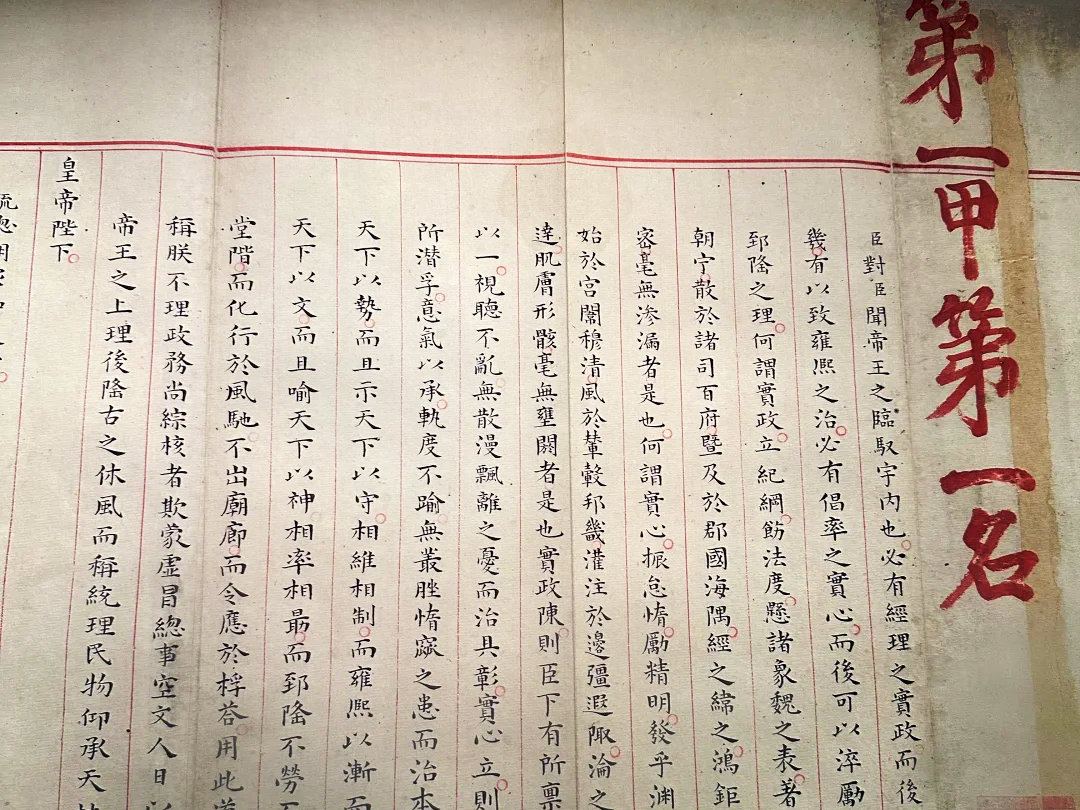 第一甲第一名
臣對臣聞帝王之臨馭宇內也必有經理之實政而後
幾有以致雍熙之治必有倡率之實心而後可以淬勵
郅隆之理何謂實政立紀綱飭法度懸諸象魏之表著
朝宁散於諸司百府暨及於郡國海隅經之緯之鴻鉅
宻毫無滲漏者是也何謂實心振怠惰勵精明發乎渊
始於宮闈穆清風於輦轂邦畿灌注於邊疆遐陬淪之
達肌膚形骸毫無壅閼者是也實政陳則臣下有所禀
以一視聽不亂無散漫飄離之憂而治具彰實心立則
所潛孚意氣以承軌度不踰無叢脞惰窳之患而治本
天下以勢而且示天下以守相維相制而雍熙以漸而
天下以文而且喻天下以神相率相最而郅隆不勞
堂階而化行於風馳不出廟廊而令應於桴荅用此
稱朕不理政務尚綜核者欺蒙虛冒總事空文人日以
帝王之上理後隆古之休風而稱統理民物仰承天
皇帝陛下